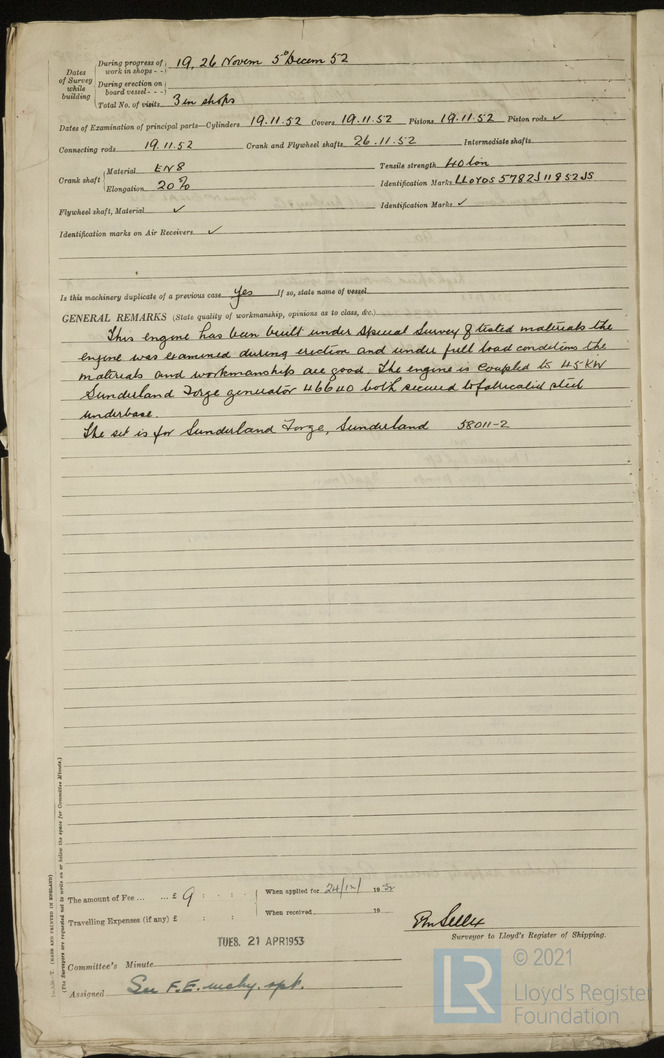 Dates of Survey while building
During progress of work in shops - - 19, 26 Novem 5th Decem 52
During erection on board vessel - - -
Total No. of visits 3 in shops
Dates of Examination of principal parts—Cylinders 19.11.52 Covers 19.11.52 Pistons 19.11.52 Piston rods ✓
Connecting rods 19.11.52 Crank and Flywheel shafts 26.11.52 Intermediate shafts
Crank shaft Material EN8 Tensile strength 40 ton
Elongation 20% Identification Marks LLOYDS 5782J 11852JS
Flywheel shaft, Material ✓ Identification Marks ✓
Identification marks on Air Receivers ✓
Is this machinery duplicate of a previous case yes If so, state name of vessel
GENERAL REMARKS (State quality of workmanship, opinions as to class, &c.)
This engine has been built under Special Survey of tested materials the
engine was examined during erection and under full load conditions the
materials and workmanship are good. The engine is coupled to 45 KW
Sunderland Forge generator 46640 both secured to fabricated steel
underbase.
The set is for Sunderland Forge, Sunderland 58011-2
The amount of Fee ... ... £ 9 : : When applied for 24/12/ 1952
Travelling Expenses (if any) £ : : When received 19
Surveyor to Lloyd's Register of Shipping.
TUES. 21 APR 1953
Committee's Minute
Assigned See F.E. mchy. rpt.
(MADE AND PRINTED IN ENGLAND)
(The Surveyors are requested not to write on or below the space for Committee Minute.)
LR
© 2021
Lloyd's Register
Foundation